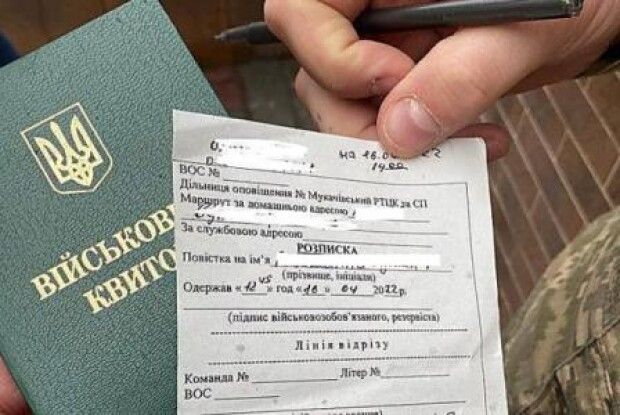 ВІЙСЬКОВ
КВИТО
на 16.0
ВОС №
Дільниця оповіщення № Мукачівський РТЦК та СП
Маршрут за домашньою адресою
За службовою адресою
РОЗПИСКА
Повістка на ім'я
(прізвище, ініціали)
Одержав «12 45» год «16» 04 2022 р.
(підпис військовозобов'язаного, резервіста)
Лінія відрізу
Команда № Літер №
ВОС